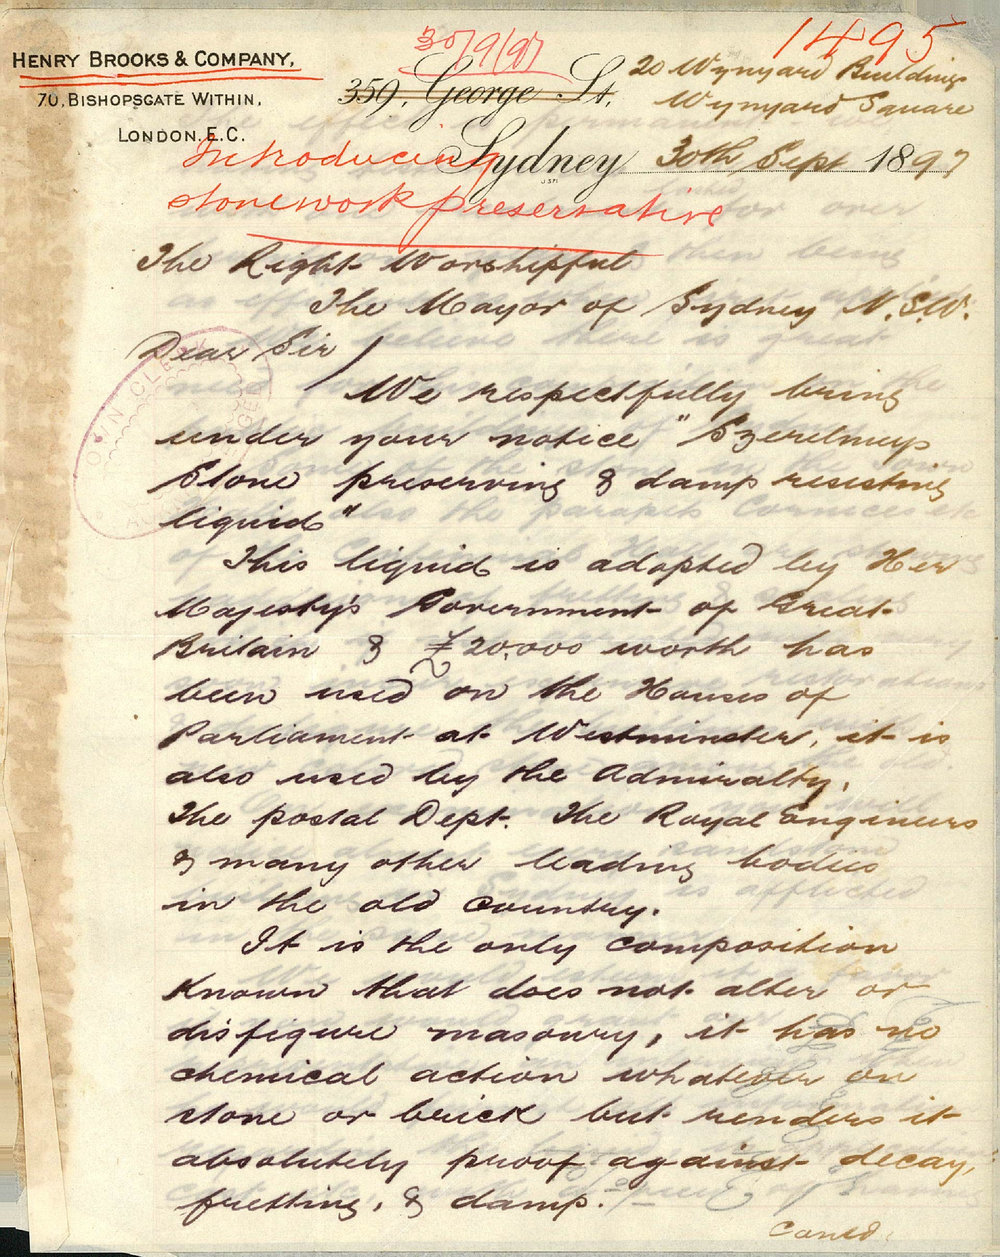 1495
30/9/97
HENRY BROOKS & COMPANY,
70, BISHOPSGATE WITHIN,
LONDON. E.C.
359, George St,
20 Wynyard Buildings
Wynyard Square
Sydney 30th Sept 1897
Introducing
stonework preservative
The Right Worshipful
The Mayor of Sydney N.S.W.
Dear Sir
We respectfully bring
under your notice "Szerelmeys
Stone preserving & damp resisting
liquid"
This liquid is adopted by Her
Majesty's Government of Great
Britain & £20,000 worth has
been used on the Houses of
Parliament at Westminster, it is
also used by the Admiralty,
The postal Dept. The Royal Engineers
& many other leading bodies
in the old country.
It is the only composition
known that does not alter or
disfigure masonry, it has no
chemical action whatever on
stone or brick but renders it
absolutely proof against decay,
fretting, & damp.
Contd.
TOWN CLERK